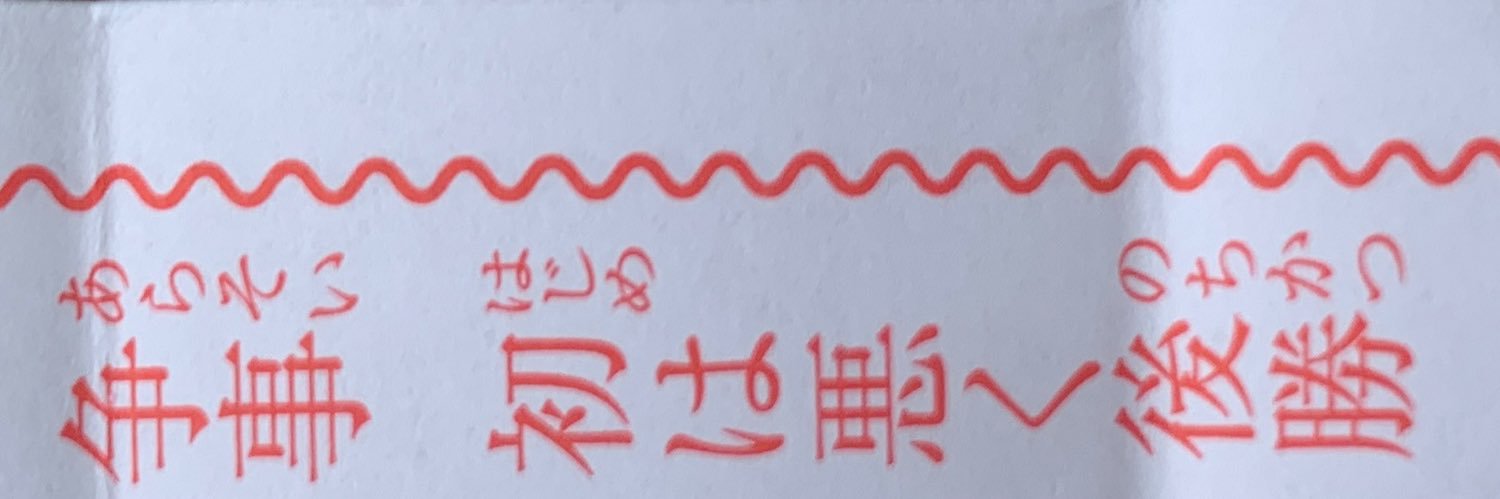 争事 初は悪く後勝
あらそい はじめ のちかつ